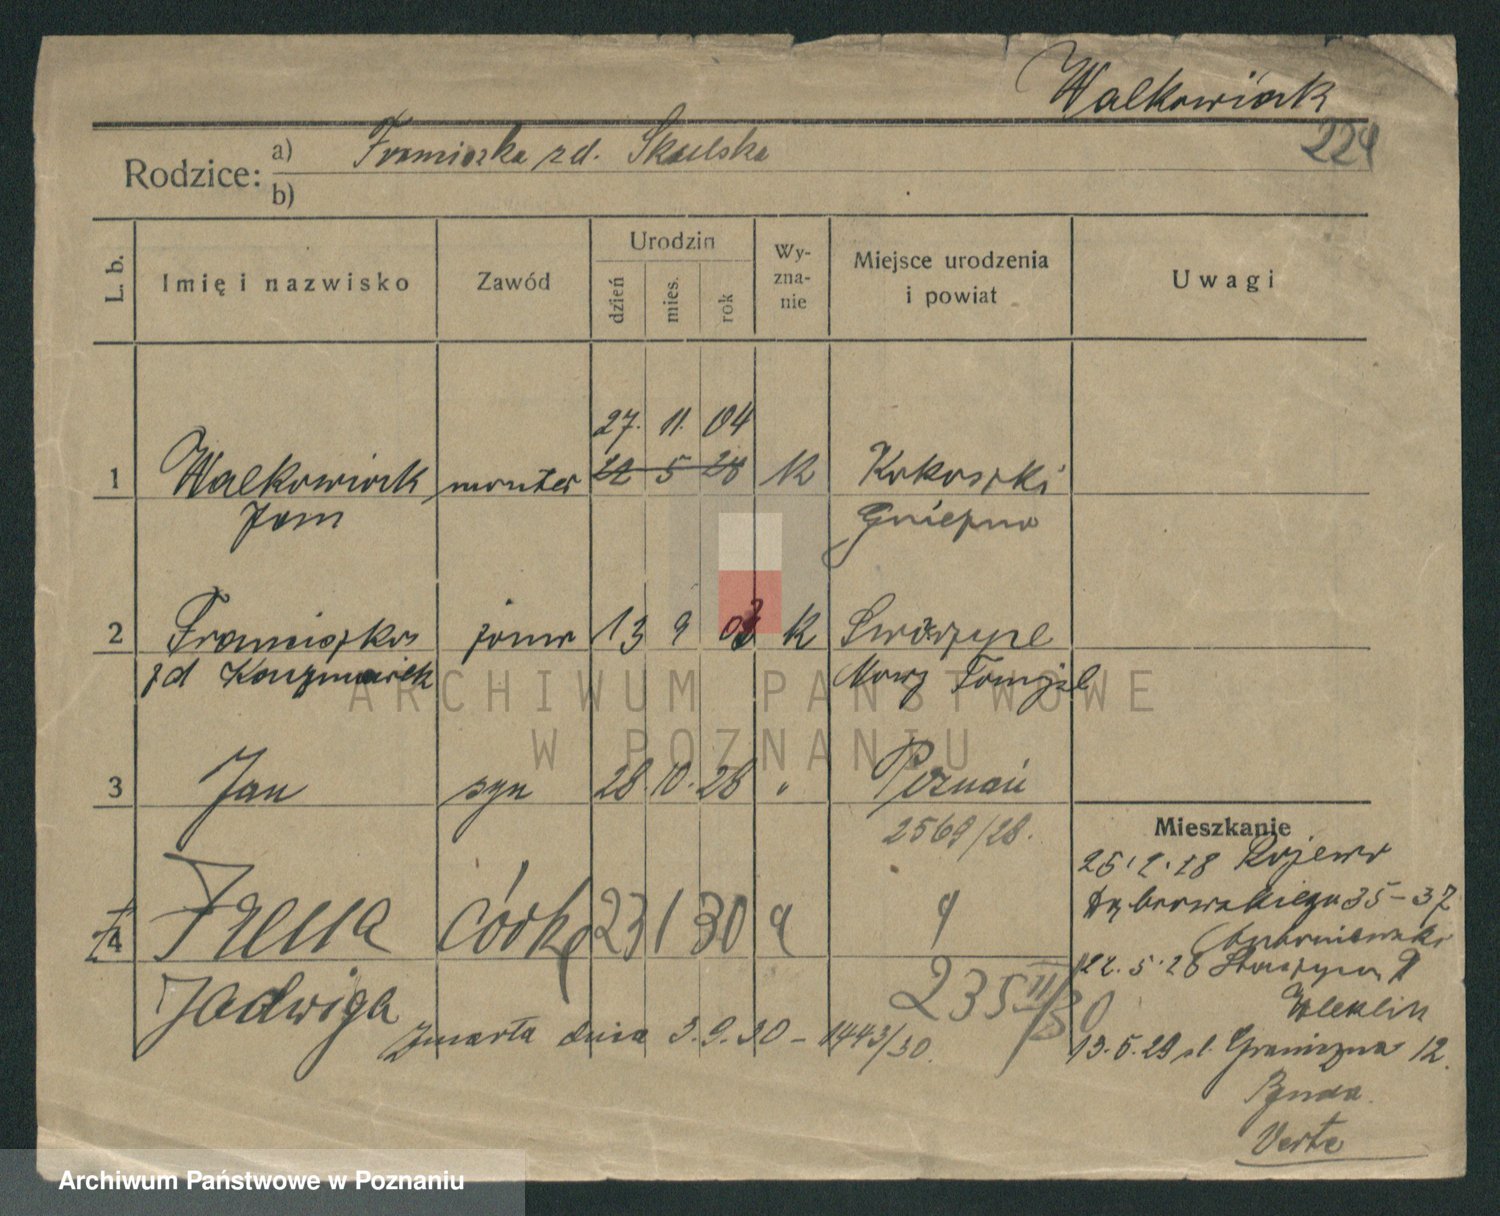 Walkowiak
224
Rodzice: a) Franciszka zd. Skulska
b)
L. b. Imię i nazwisko Zawód Urodzin dzień mies. rok Wy-zna-nie Miejsce urodzenia i powiat Uwagi
27. 11. 04
1 Walkowiak monter 22 5 28 k Kokoszki
Jan Gniezno
2 Franciszka żona 13 9 03 k
zd Kaczmarek Nowy Tomyśl
3 Jan syn 28. 10. 28 " Poznań
2569/28.
Mieszkanie
4 Irena córka 23 1 30
Jadwiga 235 II/30
Zmarła dnia 3. 9. 30 – 1443/30.
Dąbrowskiego 35-37
22. 5. 28 Staszyca
13. 5. 29 ul. Graniczna 12.
Verte
ARCHIWUM PAŃSTWOWE
W POZNANIU
Archiwum Państwowe w Poznaniu